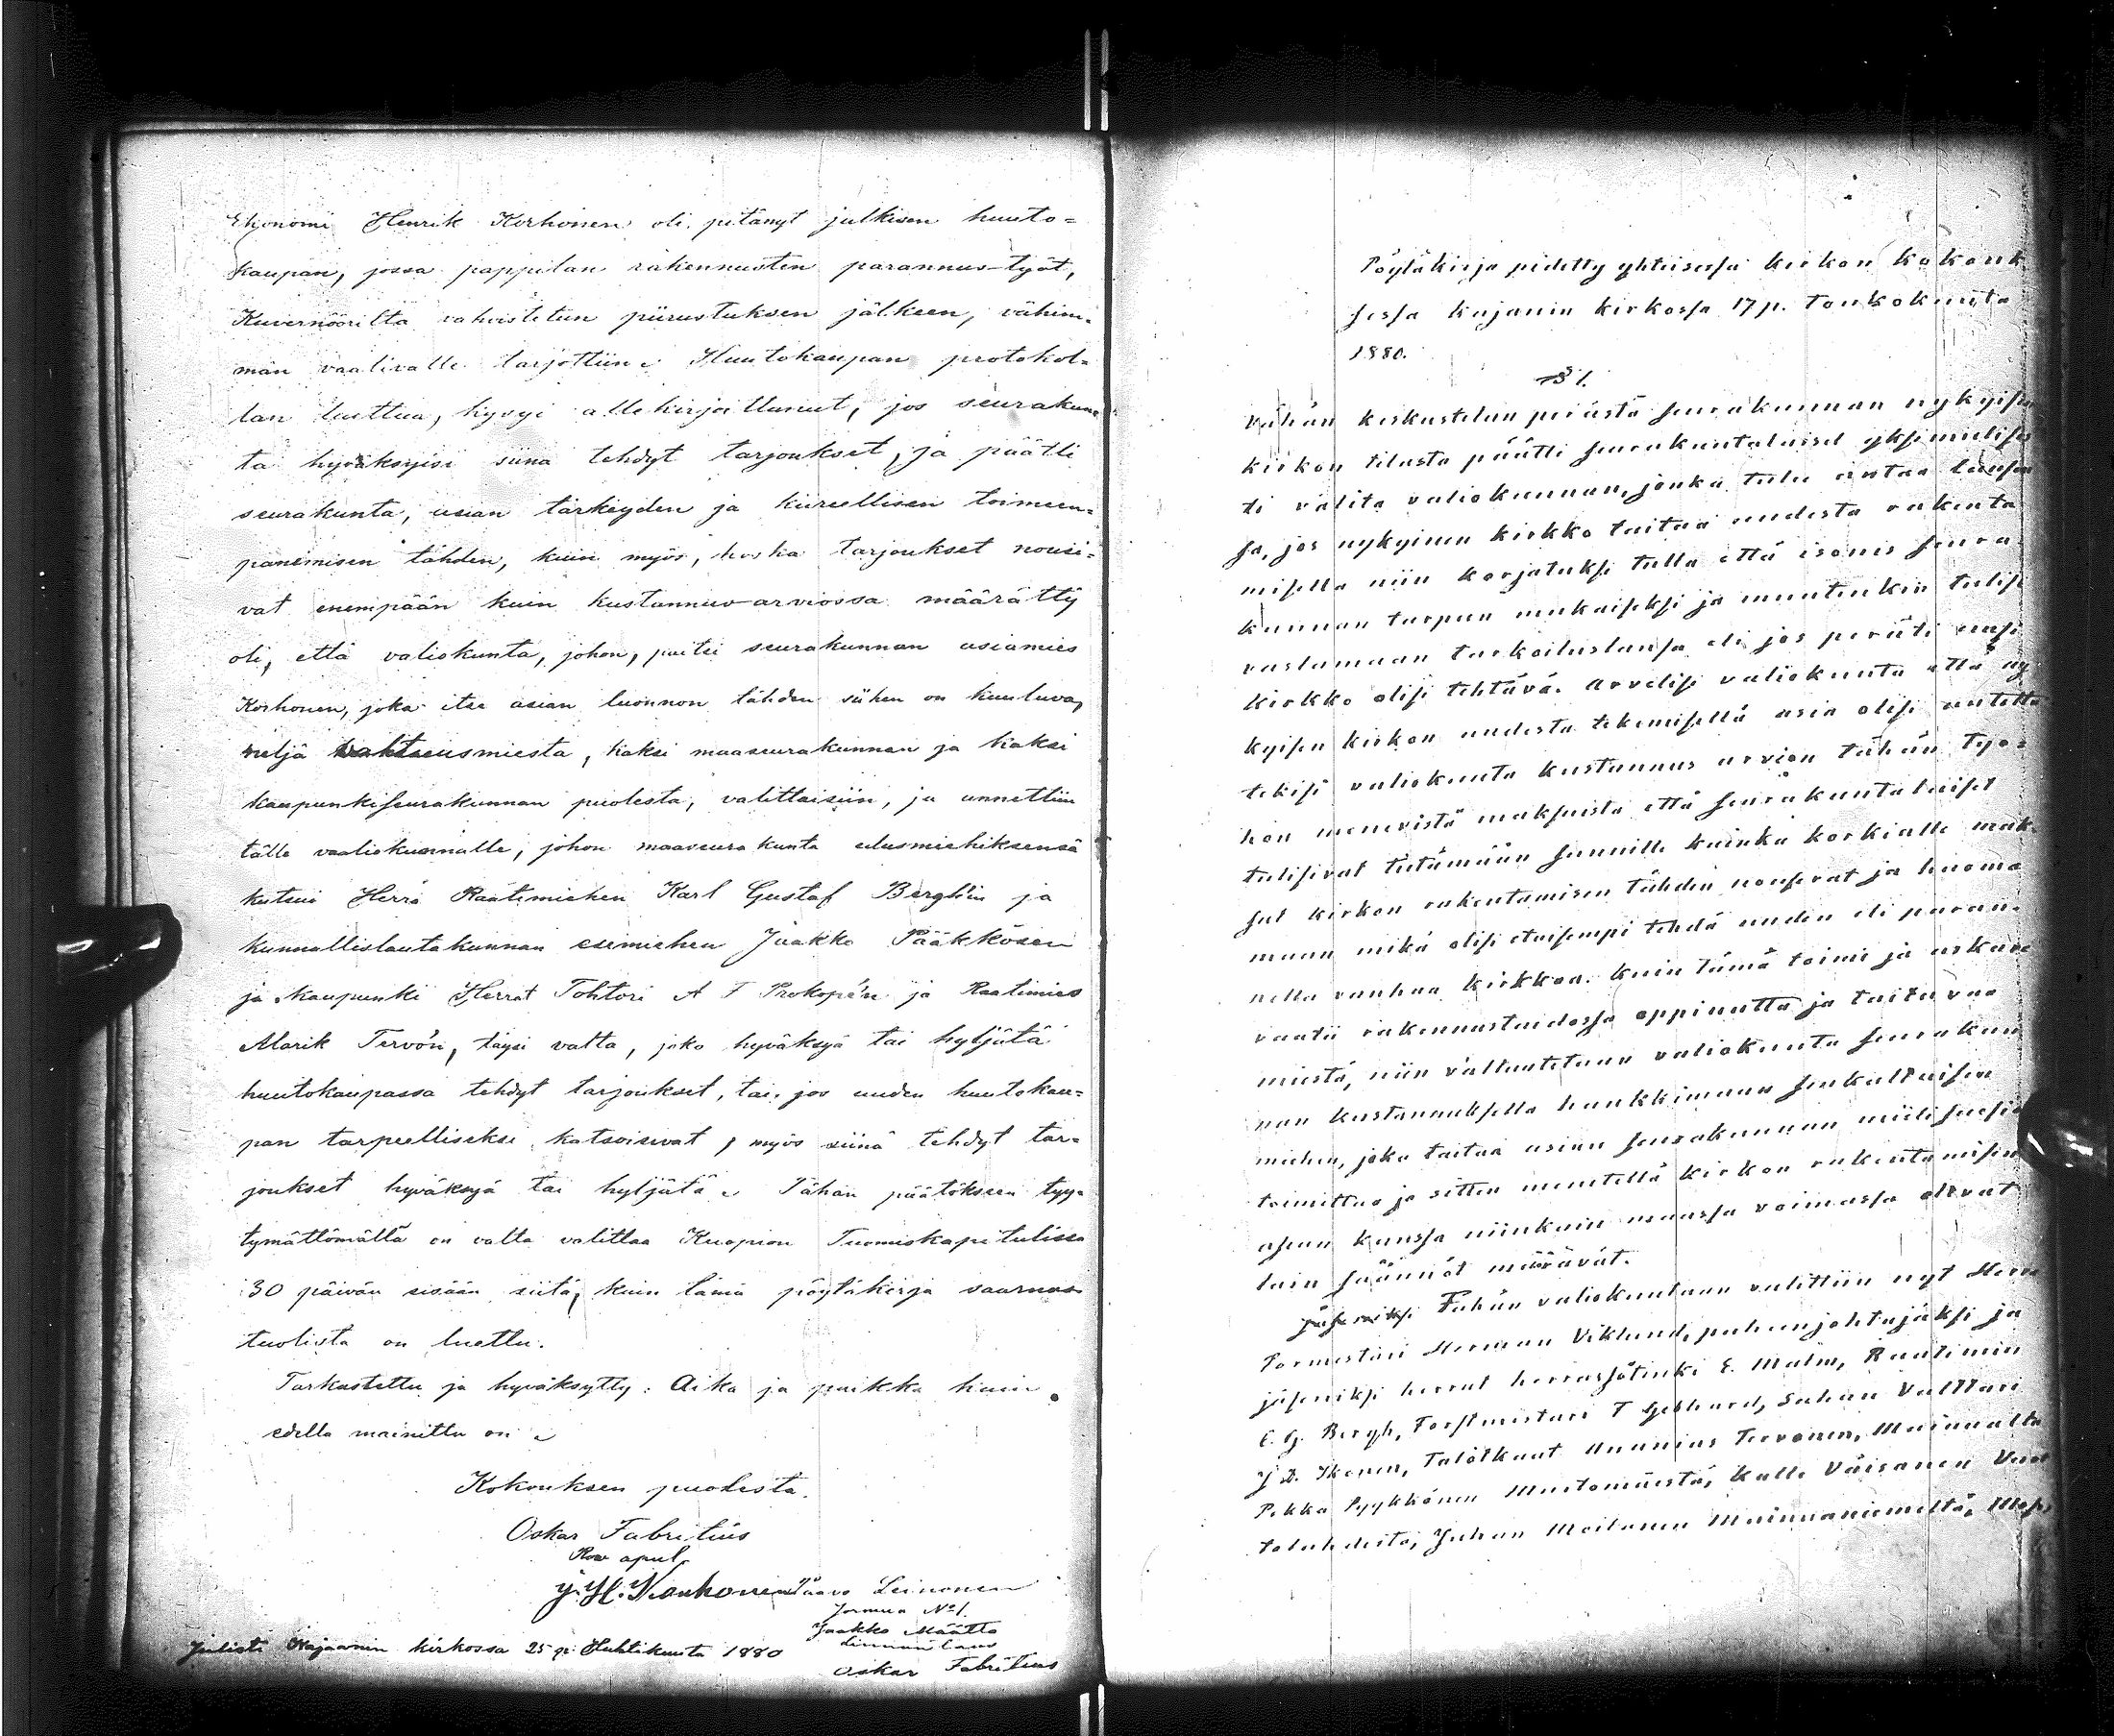 Ekonomi Henrik Korhonen oli pitänyt julkisen huuto=
kaupan, jossa pappilan rakennusten parannus-työt,
Kuvernööriltä vahvistetun piirustuksen jälkeen, vähim=
män vaativalle tarjottiin. Huutokaupan protokol=
lan luettua, kysyi allekirjoittanut, jos seurakun=
ta hyväksyisi siinä tehdyt tarjoukset, ja päätti
seurakunta, asian tärkeyden ja kiireellisen toimeen=
panemisen tähden, kuin myös, koska tarjoukset nousi=
vat enempään kuin kustannus-arviossa määrätty
oli, että valiokunta, johon, paitsi seurakunnan asiamies
Korhonen, joka itse asian luonnon tähden siihen on kuuluva,
neljä miestä, kaksi maaseurakunnan ja kaksi
kaupunkiseurakunnan puolesta, valittaisiin, ja annettiin
tälle valiokunnalle, johon maaseurakunta edusmiehiksensä
kutsui Herra Raatimiehen Karl Gustaf Berghin ja
kunnallislautakunnan esimiehen Jaakko Pääkkösen
ja kaupunki Herrat Tohtori A F Prokopén ja Raatimies
Alarik Tervón, täysi valta, joko hyväksyä tai hyljätä
huutokaupassa tehdyt tarjoukset, tai, jos uuden huutokau=
pan tarpeelliseksi katsoisivat, myös siinä tehdyt tar=
joukset hyväksyä tai hyljätä. Tähän päätökseen tyy=
tymättömällä on valta valittaa Kuopion Tuomiokapitulissa
30 päivän sisään siitä, kuin tämä pöytäkirja saarnas=
tuolista on luettu.
Tarkastettu ja hyväksytty. Aika ja paikka kuin
edellä mainittu on.
Kokouksen puolesta.
Oskar Fabritius
Rov apul.
J. H. Kaukonen Paavo Leinonen
Jormua No 1.
Jaakko Määttä
Oskar Fabritius
Julisti Kajaanin kirkossa 25 p: Huhtikuuta 1880
Pöytäkirja pidetty yhteisessä kirkon kokouk
sessa Kajanin kirkossa 17 p. toukokuuta
1880.
§ 1.
Vähän keskustelun perästä seurakunnan nykyisen
kirkon tilasta päätti seurakuntalaiset yksimielises
ti valita valiokunnan, jonka tulee antaa lausun
sa, jos nykyinen kirkko taitaa uudesta rakenta
misella niin korjatuksi tulla että isonis seura
kunnan tarpeen mukaiseksi ja muutenkin tulisi
vastamaan tarkoitustansa eli jos peräti uusi
kirkko olisi tehtävä. Arvelisi valiokunta että ny
kyisen kirkon uudesta tekemisellä asia olisi autettu
tekisi valiokunta kustannus arvion tähän työ=
hön menevistä maksuista että seurakuntalaiset
tulisivat tietämään summille kuinka korkialle mak
sut kirkon rakentamisen tähden nousevat ja huoma
maan mikä olisi etuisempi tehdä uuden eli paran=
nella vanhaa kirkkoa. Kuin tämä toimi ja askare
vaatii rakennustaidossa oppinutta ja taitavaa
miestä, niin valtuutetaan valiokunta seurakun
nan kustannuksella hankkimaan senkaltaisen
miehen, joka taitaa asian seurakunnan mieliseksi
toimittaa ja sitten menetellä kirkon rakentamisen
asian kanssa niinkuin maassa voimassa olevat
lain säännöt määrävät.
Tähän valiokuntaan valittiin nyt Herra
Pormestari Herman Viklund, puheenjohtajaksi ja
jäseniksi herrat herrassötinki E. Malm, Raatimies
C. G. Bergh, Forstmestari T Gebhard, Sahan Valttari
J D. Ikonen, Talolkaat Ananias Tervonen, Mainualta
Pekka Pyykkönen Mustomäestä, Kalle Väisänen Vuot
talahdesta, Juhan Moilanen Mainuaniemeltä,